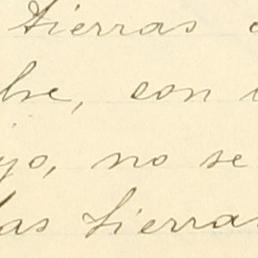 tierras
con
no se
las tierras